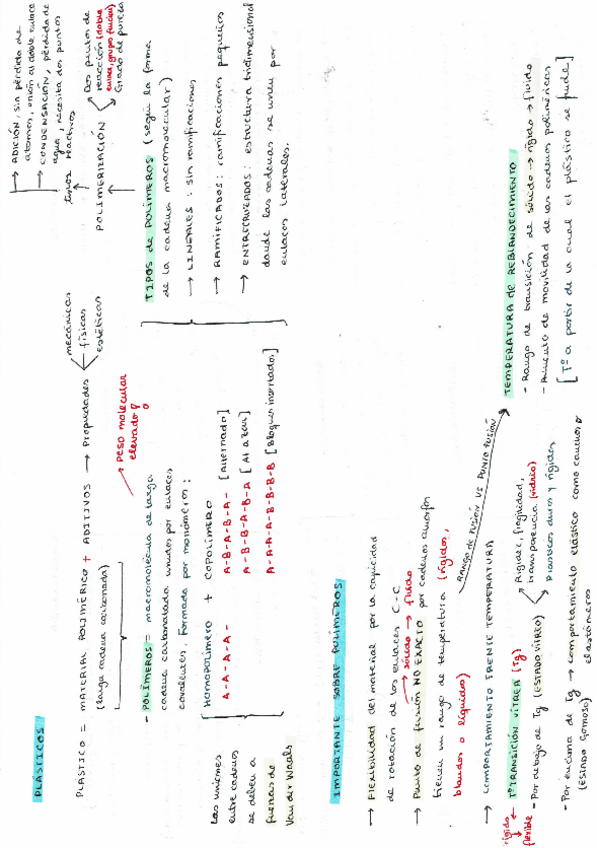 PLÁSTICOS
PLÁSTICO = MATERIAL POLIMÉRICO + ADITIVOS → Propiedades
(larga cadena carbonada)
mecánicas
físicas
estéticas
- POLÍMEROS = macromolécula de larga
cadena carbonatada unidas por enlaces
covalentes. Formada por monómeros:
→ Peso molecular
elevado
Homopolímero + COPOLÍMERO
A-A-A-A-
A-B-A-B-A- [Alternado]
A-B-A-A-B-A [Al azar]
A-A-A-A-B-B-B [Bloques insertados]
Las uniones
entre cadenas
se deben a
fuerzas de
Van der Waals
POLIMERIZACIÓN
tipos
→ ADICIÓN, sin pérdida de
átomos, unión al doble enlace
→ CONDENSACIÓN, pérdida de
agua, necesita dos puntos
reactivos
Dos puntos de
reacción (doble
enlace, grupo funcional)
Grado de pureza
TIPOS de POLÍMEROS (según la forma
de la cadena macromolecular)
→ LINEALES: sin ramificaciones
→ RAMIFICADOS: ramificaciones pequeñas
→ ENTRECRUZADOS: estructura tridimensional
donde las cadenas se unen por
enlaces laterales.
IMPORTANTE SOBRE POLÍMEROS
→ Flexibilidad del material por la capacidad
de rotación de los enlaces C-C
→ sólido → fluido
→ Punto de fusión NO EXACTO por cadenas amorfas
tienen un rango de temperatura (rígidos,
blandos o líquidos)
→ COMPORTAMIENTO FRENTE TEMPERATURA
RANGO DE FUSIÓN VS PUNTO FUSIÓN
rígido
flexible
← Tª TRANSICIÓN VÍTREA (Tg)
- Por debajo de Tg (ESTADO VÍTREO)
Rigidez, fragilidad,
transparencia (vidrio)
Plásticos duros y rígidos
- Por encima de Tg → comportamiento elástico como caucho o
(ESTADO GOMOSO)
elastómeros
TEMPERATURA de REBLANDECIMIENTO
- Rango de transición de sólido → rígido → fluido
- Aumento de movilidad de las cadenas poliméricas
[Tª a partir de la cual el plástico se funde]